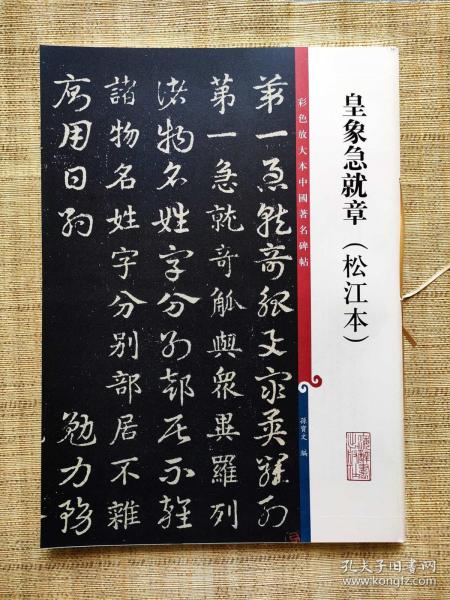 皇象急就章（松江本）
彩色放大本中國著名碑帖
孫寶文 編
第一急就奇觚與衆異羅列
第一急就奇觚與衆異羅列
諸物名姓字分別部居不雜
諸物名姓字分别部居不雜
用日約
勉力務
上海辭書出版社
孔夫子旧书网